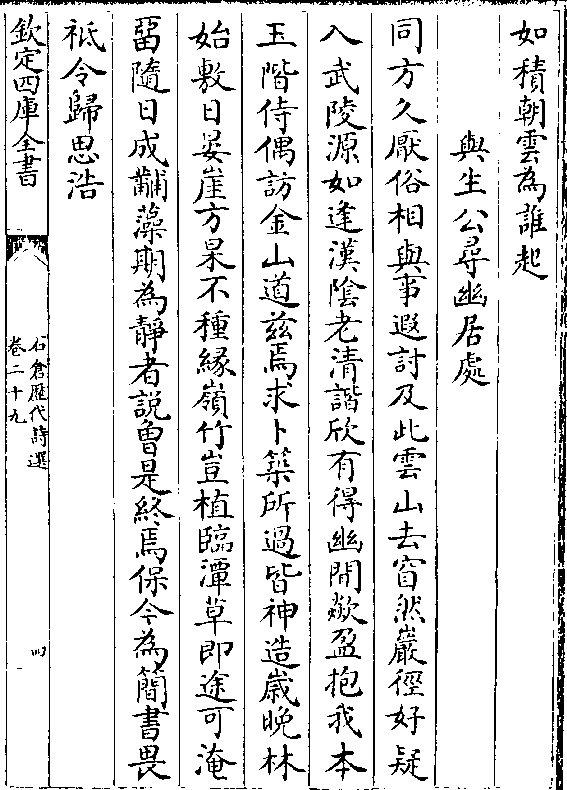 如積朝雲為誰起
與生公尋幽居處
同方久厭俗相與事遐討及此雲山去窅然巖徑好疑
入武陵源如逢漢陰老清諧欣有得幽閒歘盈抱我本
玉階侍偶訪金山道兹焉求卜築所過皆神造嵗晚林
始敷日晏崖方杲不種緣嶺竹豈植臨潭草即途可淹
畱隨日成黼藻期為靜者説曾是終焉保今為簡書畏
祗令歸思浩
欽定四庫全書
石倉歷代詩選
卷二十九
四